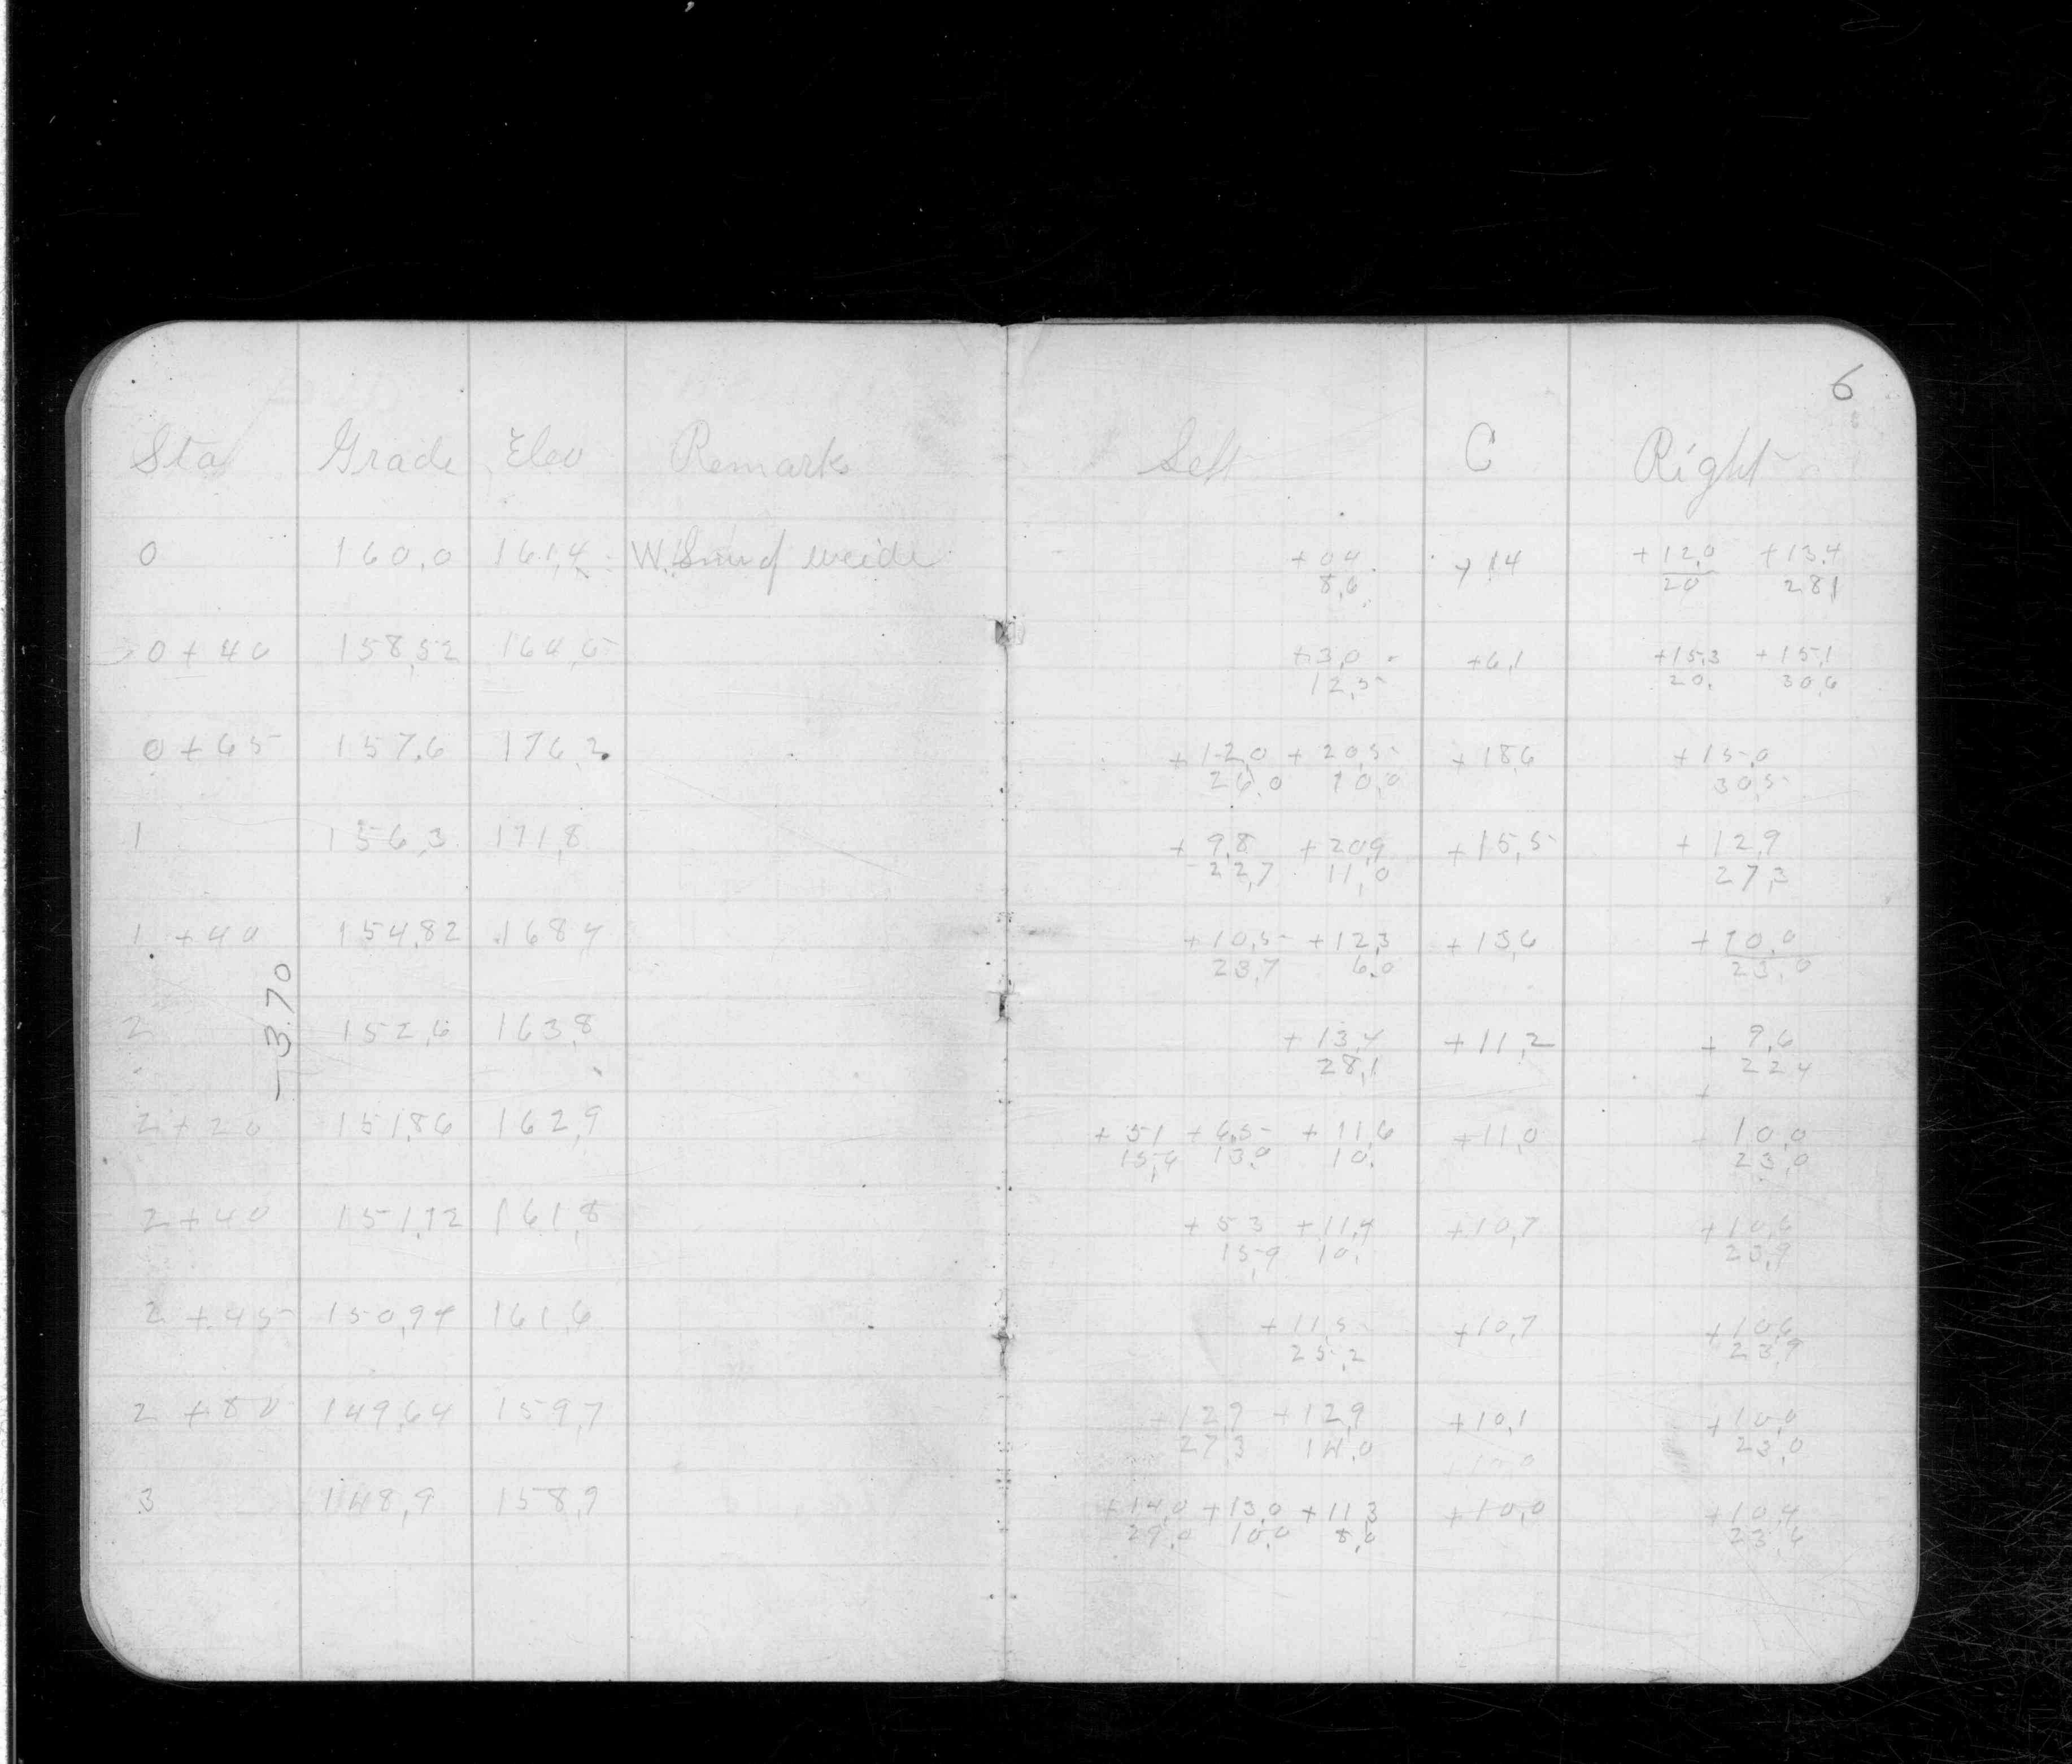 6
Sta Grade Elev Remark Left C Right
0 160,0 161,4 W. of +0,4 +1,4 +12,0 +13,4
8,6 20 28,1
0+40 158,52 164,6 +3,0 +6,1 +15,3 +15,1
12,5 20. 30,6
0+65 157,6 176,2 +12,0 +20,5 +18,6 +15,0
26,0 10,0 30,5
1 156,3 171,8 +9,8 +20,9 +15,5 +12,9
22,7 11,0 27,3
1+40 154,82 168,4 +10,5 +12,3 +13,6 +10,0
23,7 6,0 23,0
-3.70
2 152,6 163,8 +13,4 +11,2 +9,6
28,1 22,4
+
2+20 151,86 162,9 +5,1 +6,5 +11,6 +11,0 +10,0
15,6 13,0 10. 23,0
2+40 151,12 161,8 +5,3 +11,4 +10,7 +10,6
15,9 10. 23,9
2+45 150,94 161,6 +11,5 +10,7 +10,6
25,2 23,9
2+80 149,64 159,7 +12,9 +12,9 +10,1 +10,0
27,3 14,0 23,0
3 148,9 158,9 +14,0 +13,0 +11,3 +10,0 +10,4
29,0 10,0 8,0 23,6